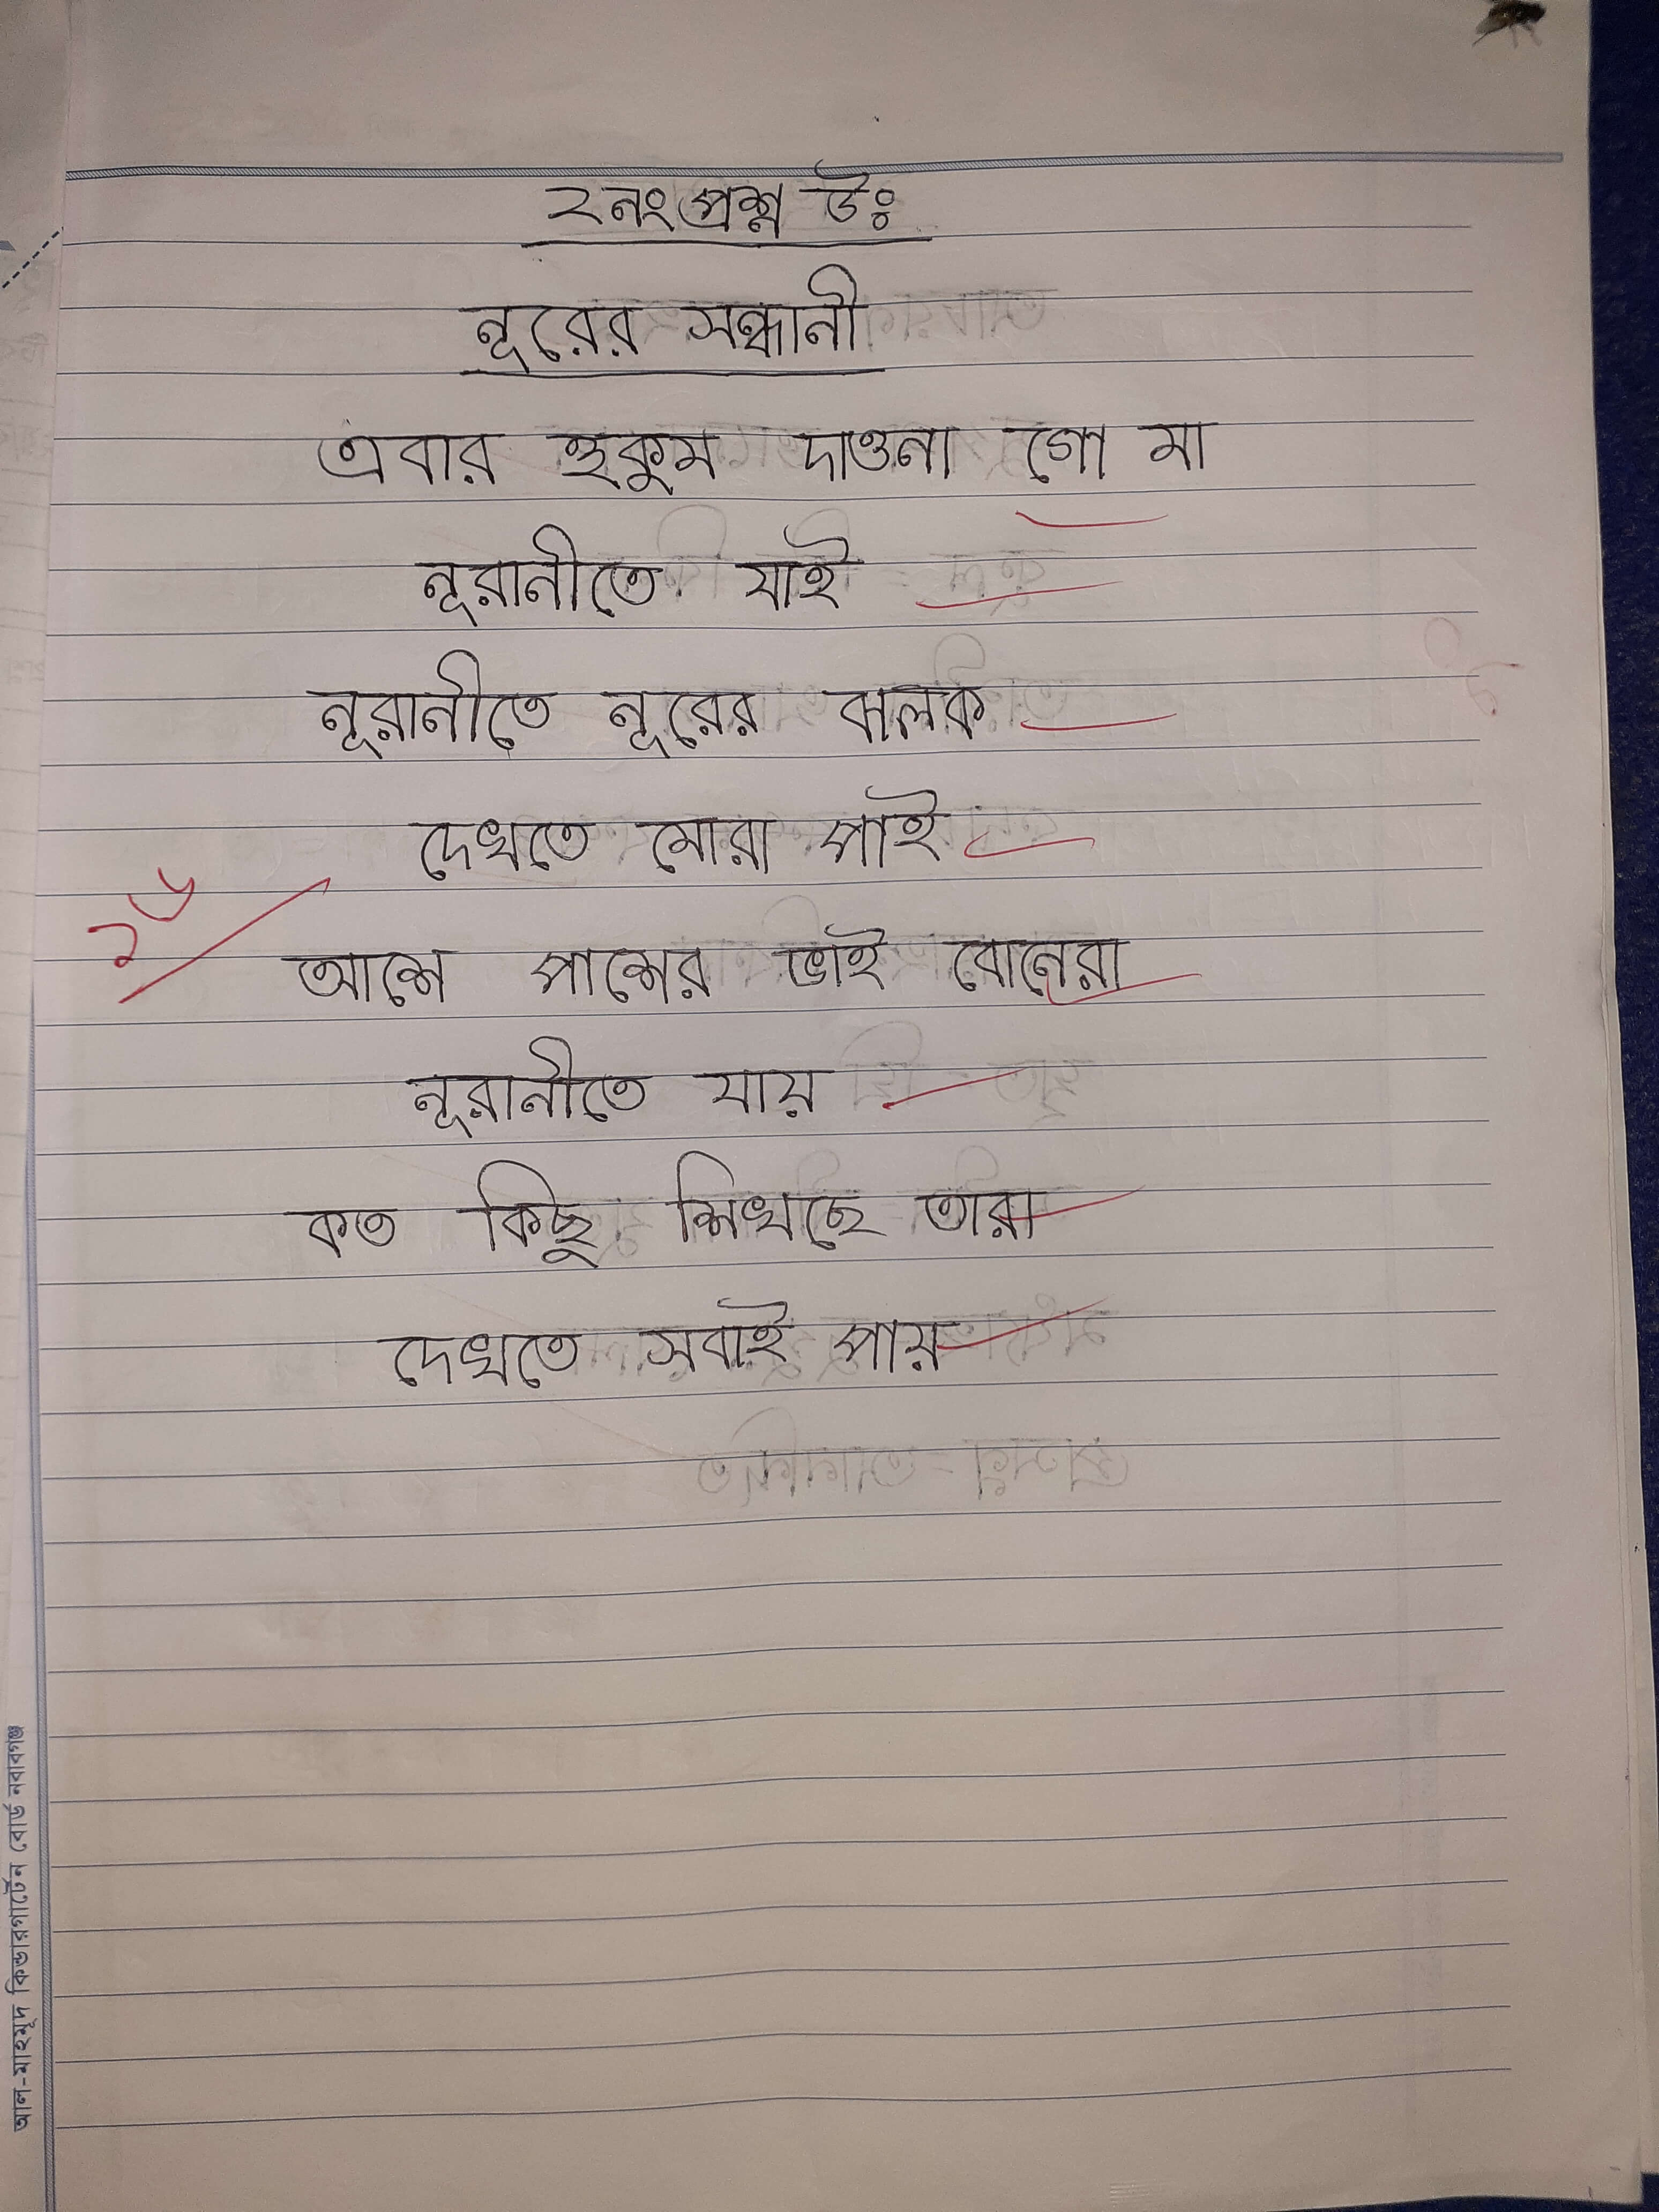 ২নং প্রশ্ন উঃ
নূরের সন্ধানী
এবার হুকুম দাওনা গো মা
নূরানীতে যাই
নূরানীতে নূরের ঝলক
দেখতে মোরা পাই
১৬
আশে পাশের ভাই বোনেরা
নূরানীতে যায়
কত কিছু শিখছে তারা
দেখতে সবাই পায়
আল-মাহমুদ কিন্ডারগার্টেন বোর্ড নবাবগঞ্জ